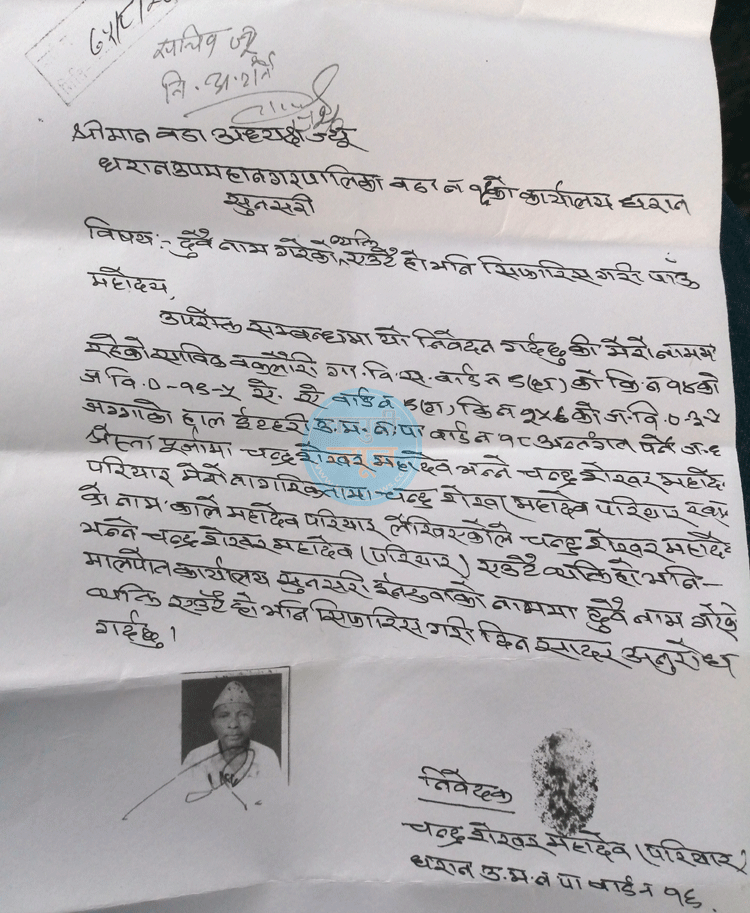 ७५/८/
सचिव ज्यू
नि. अ. गर्ने
श्रीमान वडा अध्यक्ष ज्यू
धरान उपमहानगरपालिका वडा नं को कार्यालय धरान
सुनसरी
विषयः- दुवै नाम गरेको व्यक्ति एउटै हो भनि सिफारिस गरी पाँउ
महोदय,
उपरोक्त सम्बन्धमा यो निवेदन गर्दछु की मेरो नाममा
रहेको साविक वकलौरी गा. वि. स. वार्ड नं ८(हा) को कि. नं १४को
ज. वि. ०-१८-५ वार्ड नं ८(हा, कि नं को ज. वि. ०-३-५
जग्गाको हाल ईटहरी उ. म. न. पा वार्ड नं १८ अन्तर्गत पर्ने ज.ध
श्रेस्ता पूर्जामा चन्द्र शेखर महादेव भन्ने चन्द्र शेखर महादे
परियार मेरो नागरिकतामा चन्द्र शेखर महादेव परियार
को नाम काले महादेव परियार लेखिएकोले चन्द्र शेखर महादेव
भन्ने चन्द्र शेखर महादेव (परियार) एउटै व्यक्ति हो भनि-
मालपोत कार्यालय सुनसरी ईनरुवाको नाममा दुवै नाम गरेको
व्यक्ति एउटै हो भनि सिफारिस गरी दिन सादर अनुरोध
गर्दछु।
निवेदक
चन्द्र शेखर महादेव (परियार)
धरान उ. म. न पा वार्ड नं १६.